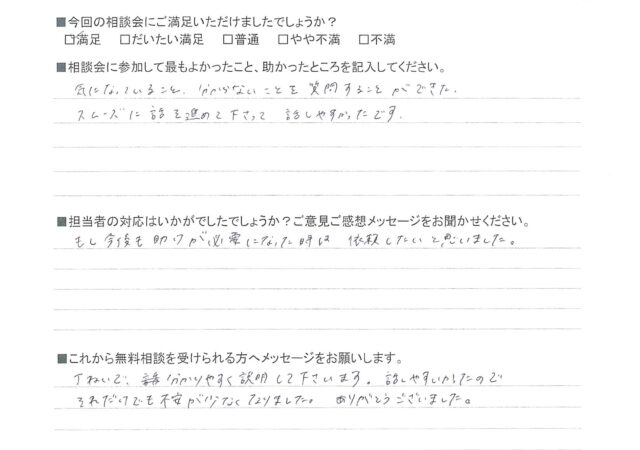 ■今回の相談会にご満足いただけましたでしょうか？
☑満足　□だいたい満足　□普通　□やや不満　□不満
■相談会に参加して最もよかったこと、助かったところを記入してください。
気になっていること、分からないことを質問することができた。
スムーズに話を進めて下さって話しやすかったです。
■担当者の対応はいかがでしたでしょうか？ご意見ご感想メッセージをお聞かせください。
もし今後も助けが必要になった時は依頼したいと思いました。
■これから無料相談を受けられる方へメッセージをお願いします。
丁ねいで、分かりやすく説明して下さいます。話しやすいかたので
それだけでも不安が少なくなりました。ありがとうございました。